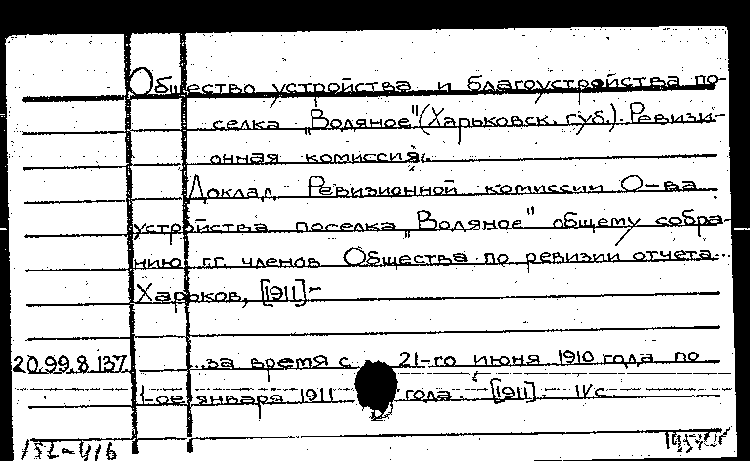 Общество устройства и благоустройства по-
селка "Водяное" (Харьковск. губ.). Ревизи-
онная комиссия.
Доклад Ревизионной комиссии О-ва
устройства поселка "Водяное" общему собра-
нию г.г. членов Общества по ревизии отчета...
Харьков, [1911]-
20.99.8.137 ...за время с 21-го июня 1910 года по
1-ое января 1911 года. [1911]. 11 с.